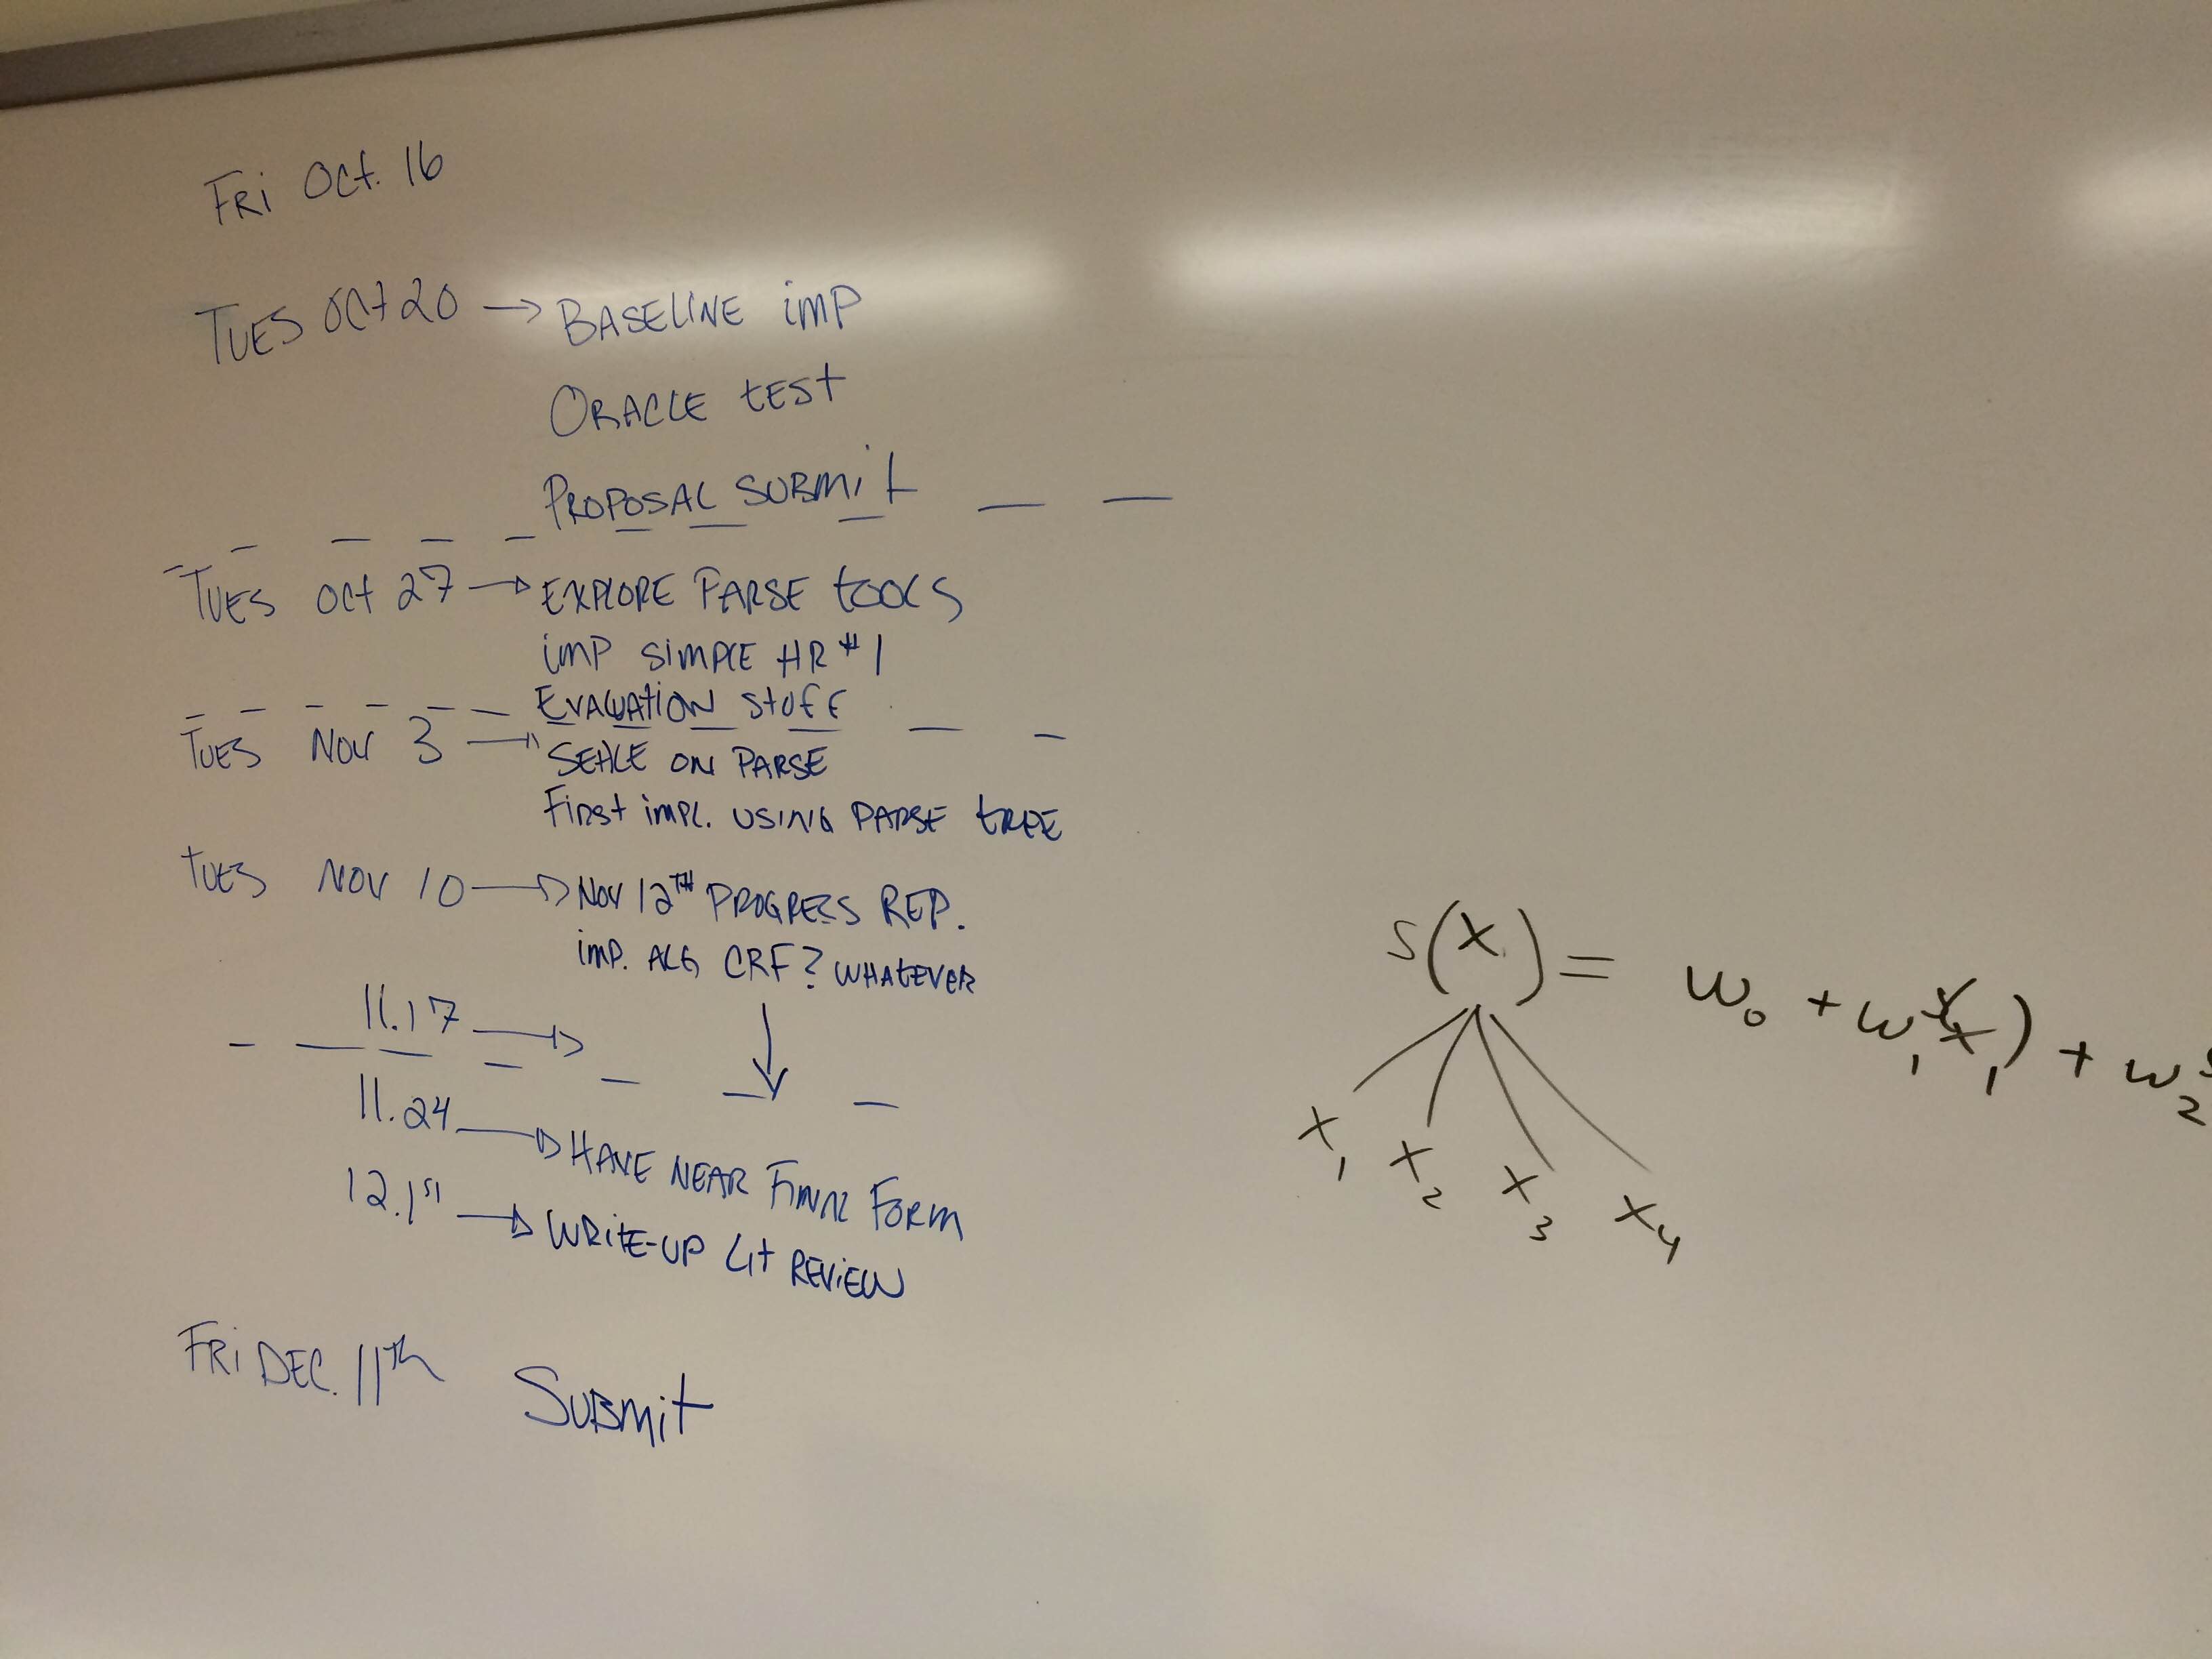 FRi Oct. 16
TUES Oct 20 → BASELINE imp
ORACLE tESt
PROPOSAL SUBMit
TUES Oct 27 → EXPLORE PARSE tOOLS
imp SiMPLE HR #1
EVALUAtiON StUFF
TUES NOV 3 → SEttLE ON PARSE
FiRSt iMPL. USING PARSE tREE
tUES NOV 10 → NOV 12TH PROGRESS REP.
imp. ALG CRF? WHAtEVER
11.17 →
11.24 → HAVE NEAR FiNAL FORM
12.1st → WRitE-UP Lit REViEW
FRi DEC. 11th SUBMit
S(x) = w₀ + w₁ x₁) + w₂
x₁ x₂ x₃ x₄